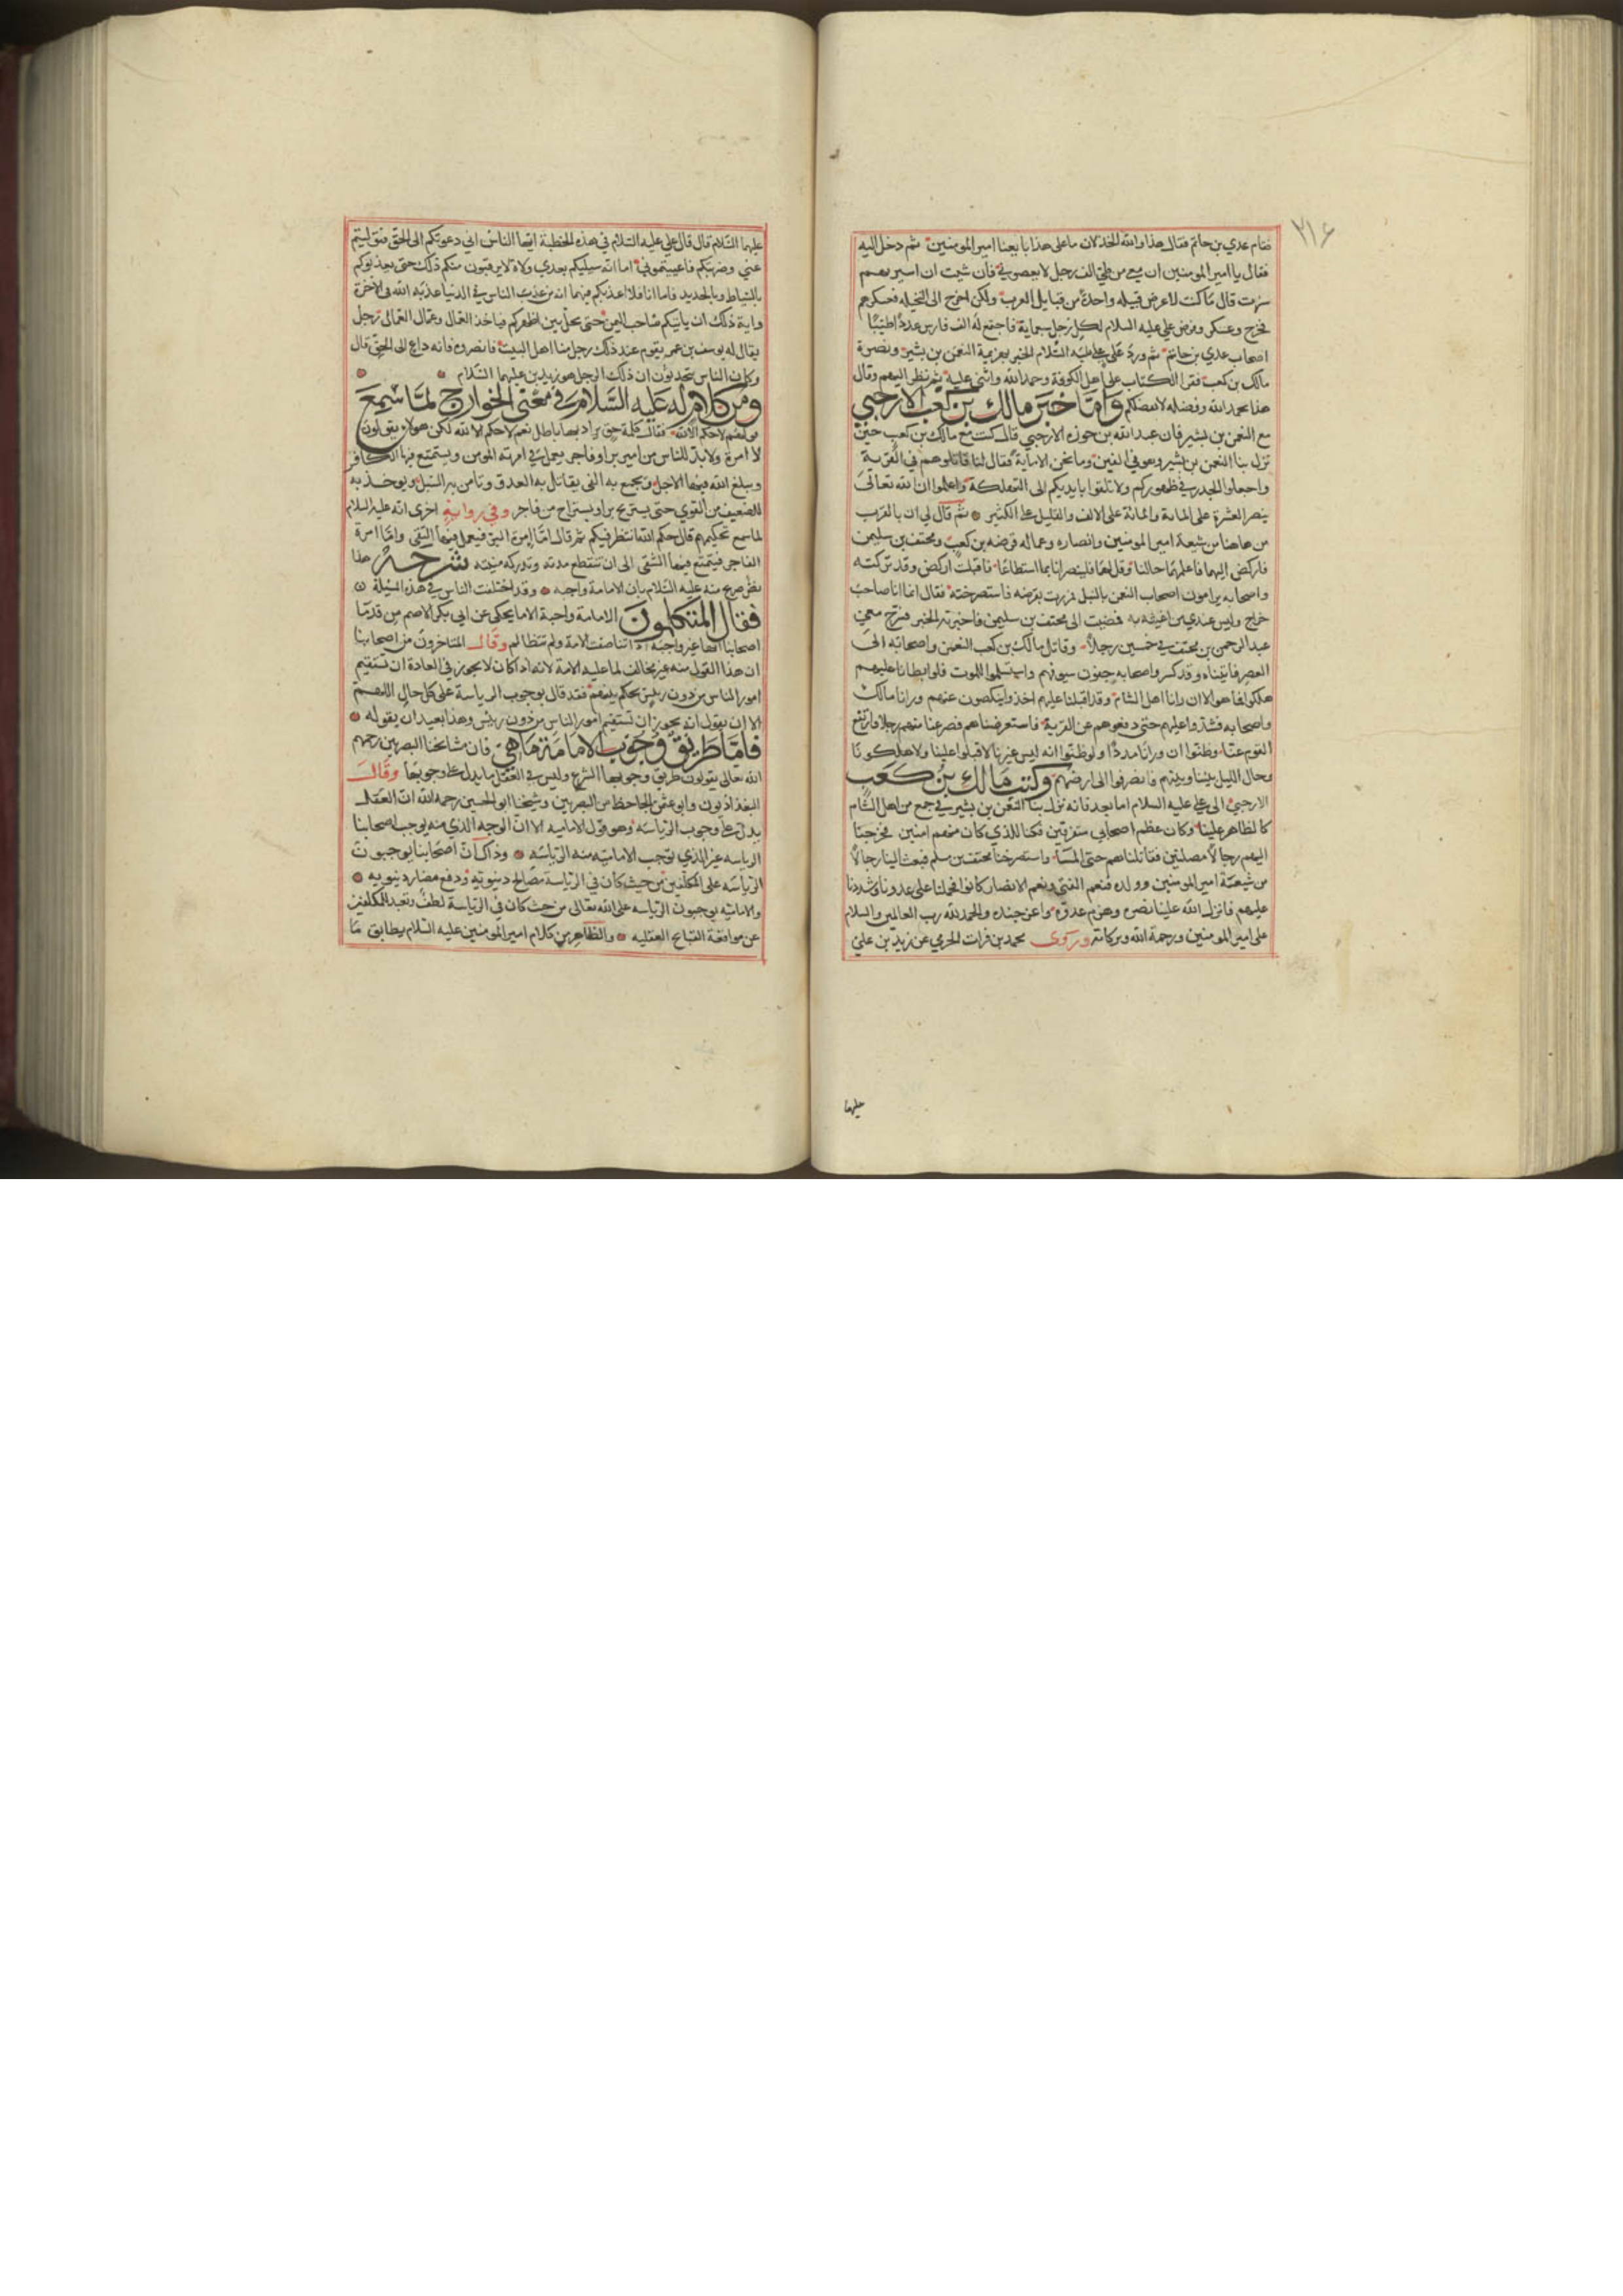 ٣١٤
فقام عدي بن حاتم فقال هذا والله الخذلان ما على هذا بايعنا امير المومنين ثم دخل اليه
فقال يا امير المومنين ان معي من طي الف رجل لا يعصوني فان شيت ان اسير بهم
سرت قال ما كنت لاعرض قبيله واحدة من قبايل العرب ولكن اخرج الى النخيله فعسكر بهم
فخرج وعسكر وفرض علي عليه السلام لكل رجل سبماية فاجتمع له الف فارس عدد اطيبا
اصحاب عدي بن حاتم ثم ورد على علي عليه السلام الخبر بهزيمة النعمن بن بشير ونصرة
مالك بن كعب فقرا الكتاب على اهل الكوفة وحمد الله واثنى عليه ثم نظر اليهم وقال
هذا بحمد الله وفضله لا بفضلكم واما خبر مالك بن كعب الارحبي
مع النعمن بن بشير فان عبد الله بن حوزه الارحبي قال كنت مع مالك بن كعب حين
نزل بنا النعمن بن بشير وهو في الفين وما نحن الا ماية فقال لنا قاتلوهم في القرية
واجعلوا الجدر في ظهوركم ولا تلقوا بايديكم الى التهلكة واعلموا ان الله تعالى
ينصر العشرة على الماية والمائة على الالف والقليل على الكثير ثم قال لي ان بالقرب
من هاهنا من شيعة امير المومنين وانصاره وعماله قرضه بن كعب ومخنف بن سليمن
فاركض اليهما فاعلمهما حالنا وقل لهما فلينصرانا بما استطاعا فاقبلت اركض وقد تركته
واصحابه يرامون اصحاب النعمن بالنبل فمررت بقرضه فاستصرخته فقال انما انا صاحب
خراج وليس عندي من اغيثه به فمضيت الى مخنف بن سليمن فاخبرته الخبر فسرح معي
عبد الرحمن بن مخنف في خمسين رجلا وقاتل مالك بن كعب النعمن واصحابه الى
العصر فاتيناه وقد كسر واصحابه جفون سيوفهم واستسلموا للموت فلو ابطانا عليهم
هلكوا فما هو الا ان رانا اهل الشام وقد اقبلنا عليهم اخذوا ينكصون عنهم ورانا مالك
واصحابه فشدوا عليهم حتى دفعوهم عن القرية فاستعرضناهم فصرعنا منهم رجلا وارتفع
القوم عنا وظنوا ان ورانا مددا ولو ظنوا انه ليس غيرنا لاقبلوا علينا ولاهلكونا
وحال الليل بيننا وبينهم فانصرفوا الى ارضهم وكتب مالك بن كعب
الارحبي الى علي عليه السلام اما بعد فانه نزل بنا النعمن بن بشير في جمع من اهل الشام
كالظاهر علينا وكان عظم اصحابي متفرقين فكنا للذي كان منهم امنين فخرجنا
اليهم رجالا مصلتين فقاتلناهم حتى المسا واستصرخنا مخنف بن سليم فبعث الينا رجالا
من شيعة امير المومنين وولده فنعم الفتى ونعم الانصار كانوا فحملنا على عدونا وشددنا
عليهم فانزل الله علينا نصره وهزم عدوه واعز جنده والحمد لله رب العالمين والسلام
على امير المومنين ورحمة الله وبركاته وروى محمد بن فرات الجرمي عن زيد بن علي
عليهما
عليهما السلام قال قال علي عليه السلام في هذه الخطبة ايها الناس اني دعوتكم الى الحق فتوليتم
عني وضربتكم فاعييتموني اما انه سيليكم بعدي ولاة لا يرقبون منكم ذلك حتى يعذبوكم
بالسياط وبالحديد فاما انا فلا اعذبكم بهما انه من عذب الناس في الدنيا عذبه الله في الاخرة
واية ذلك ان ياتيكم صاحب اليمن حتى يحل بين اظهركم فياخذ العمال وعمال العمال رجل
يقال له يوسف بن عمر يقوم عند ذلك رجل منا اهل البيت فانصروه فانه داع الى الحق قال
وكان الناس يتحدثون ان ذلك الرجل هو زيد بن علي عليهما السلام
ومن كلام له عليه السلام في معنى الخوارج لما سمع
قولهم لا حكم الا لله فقال كلمة حق يراد بها باطل نعم لا حكم الا لله لكن هولا يقولون
لا امرة ولا بد للناس من امير بر او فاجر يعمل في امرته المومن ويستمتع فيها الكافر
ويبلغ الله فيها الاجل ويجمع به الفي ويقاتل به العدو وتامن به السبل ويوخذ به
للضعيف من القوي حتى يستريح بر او يستراح من فاجر وفي رواية اخرى انه عليه السلام
لما سمع تحكيمهم قال حكم الله انتظر فيكم ثم قال اما الامرة البرة فيعمل فيها التقي واما امرة
الفاجر فيتمتع فيها الشقي الى ان تنقطع مدته وتدركه منيته شرحه هذا
نص صريح منه عليه السلام بان الامامة واجبه وقد اختلفت الناس في هذه المسيلة
فقال المتكلمون الامامة واجبة الا ما يحكى عن ابي بكر الاصم من قدما
اصحابنا انها غير واجبة اذا تناصفت الامة ولم تتظالم وقال المتاخرون من اصحابنا
ان هذا القول منه غير مخالف لما عليه الامة لانه اذا كان لا يجوز في العادة ان تستقيم
امور الناس من دون رييس يحكم بينهم فقد قال بوجوب الرياسة على كل حال اللهم
الا ان يقول انه يجوز ان تستقيم امور الناس من دون رييس وهذا بعيد ان يقوله
فاما طريق وجوب الامامة ما هي فان مشايخنا البصريين رحمهم
الله تعالى يقولون طريق وجوبها الشرع وليس في العقل ما يدل على وجوبها وقال
البغداذيون وابو عثمن الجاحظ من البصريين وشيخنا ابو الحسين رحمه الله ان العقل
يدل على وجوب الرياسه وهو قول الاماميه الا ان الوجه الذي منه يوجب اصحابنا
الرياسه غير الذي توجب الاماميه منه الرياسه وذاك ان اصحابنا يوجبون
الرياسه على المكلفين من حيث كان في الرياسة مصالح دنيويه ودفع مضار دنيويه
والاماميه يوجبون الرياسه على الله تعالى من حيث كان في الرياسة لطف وتبعيد للمكلفين
عن مواقعة القبايح العقليه والظاهر من كلام امير المومنين عليه السلام يطابق ما